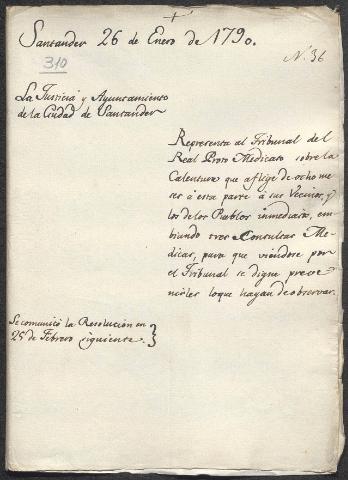 +
Santander 26 de Enero de 1790.
310
N.º 36
La Justicia y Ayuntamiento
de la Ciudad de Santander
Representa al Tribunal del
Real Proto Medicato sobre la
Calentura que aflige de ocho me
ses á esta parte á sus Vecinos, y
los de los Pueblos inmediatos, em-
biando tres Consultas Me-
dicas, para que viendose por
el Tribunal se digne preve
nirles lo que hayan de observar.
Se comunicó la Resolucion en
25 de Febrero siguiente.